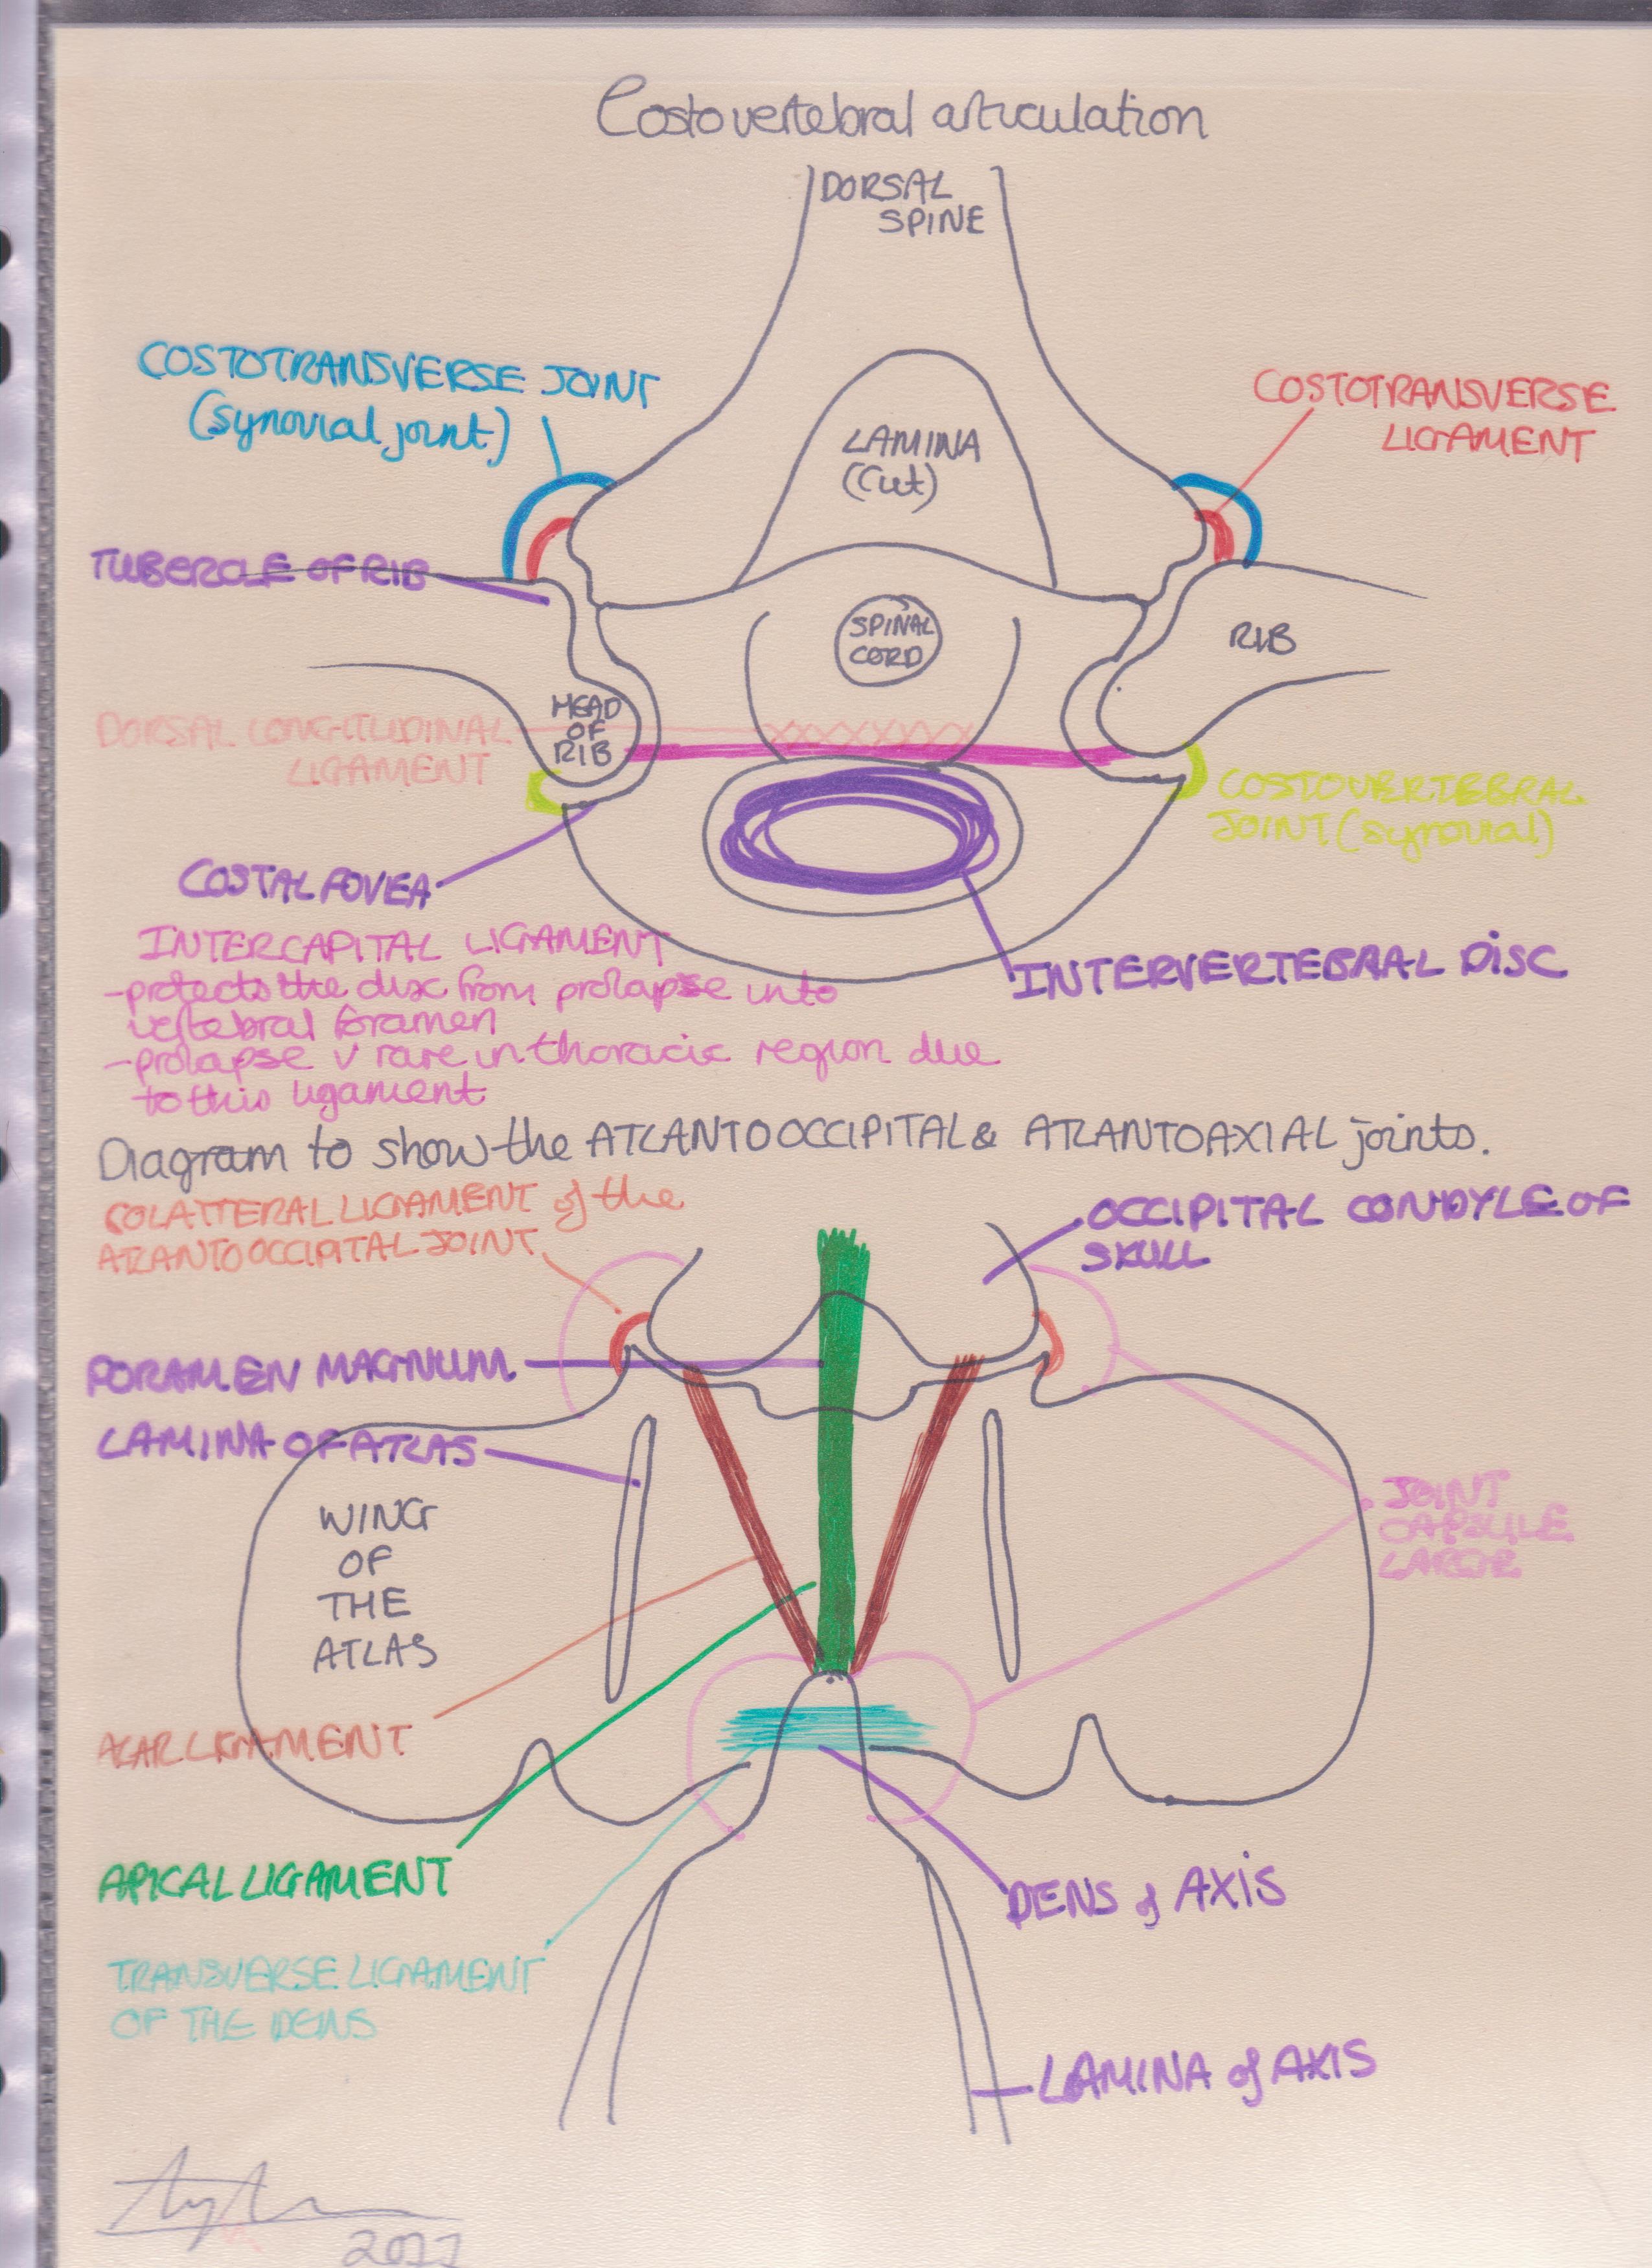 Costovertebral articulation
DORSAL
SPINE
COSTOTRANSVERSE JOINT
(synovial joint)
COSTOTRANSVERSE
LIGAMENT
LAMINA
(Cut)
TUBERCLE OF RIB
SPINAL
CORD
RIB
HEAD
OF
RIB
DORSAL LONGITUDINAL
LIGAMENT
COSTOVERTEBRAL
JOINT (synovial)
COSTAL FOVEA
INTERCAPITAL LIGAMENT
-protects the disc from prolapse into
vertebral foramen
-prolapse v rare in thoracic region due
to this ligament
INTERVERTEBRAL DISC
Diagram to show the ATLANTOOCCIPITAL & ATLANTOAXIAL joints.
COLATTERAL LIGAMENT of the
ATLANTOOCCIPITAL JOINT
OCCIPITAL CONDYLE OF
SKULL
FORAMEN MAGNUM
LAMINA OF ATLAS
WING
OF
THE
ATLAS
JOINT
CAPSULE
ALAR LIGAMENT
APICAL LIGAMENT
DENS of AXIS
TRANSVERSE LIGAMENT
OF THE DENS
LAMINA of AXIS